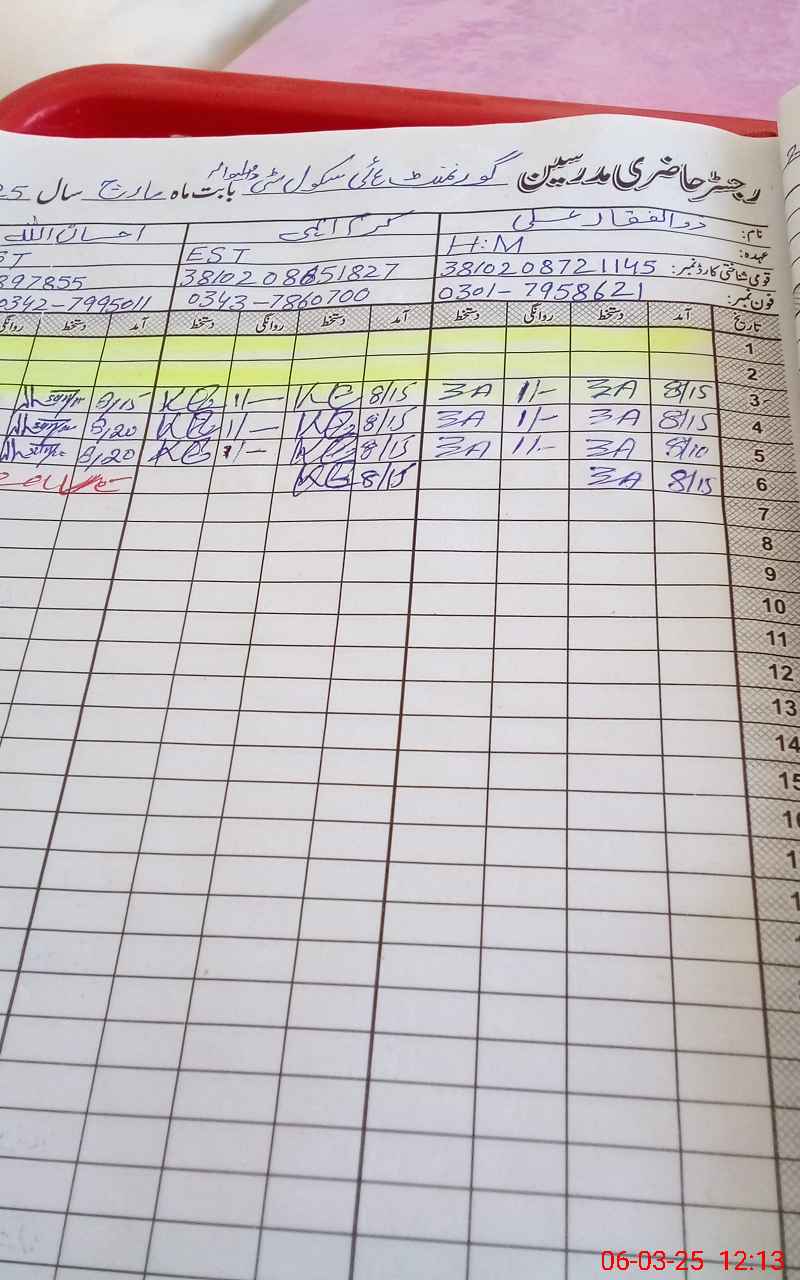 رجسٹر حاضری مدرسین گورنمنٹ ہائی سکول سٹی بابت ماہ مارچ سال 25
نام: ذوالفقار علی کرم الہی احسان اللہ
عہدہ: H:M EST ST
قومی شناختی کارڈ نمبر: 3810208721145 897855
فون نمبر: 0301-7958621 0343-7860700 0342-7995011
تاریخ آمد دستخط روانگی دستخط آمد دستخط روانگی دستخط آمد دستخط روانگی
1
2
3 8/15 ZA 1/- ZA 8/15 KE 1/- KE 8,15
4 8/15 ZA 1/- ZA 8/15 KE 1/- KE 8,20
5 8/10 ZA 1/- ZA 8/15 KE 1/- KE 8,20
6 8/15 ZA 8/15 KE
7
8
9
10
11
12
13
14
15
06-03-25 12:13